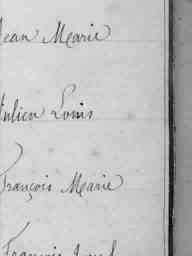 Jean Marie
Julien Louis
François Marie
François